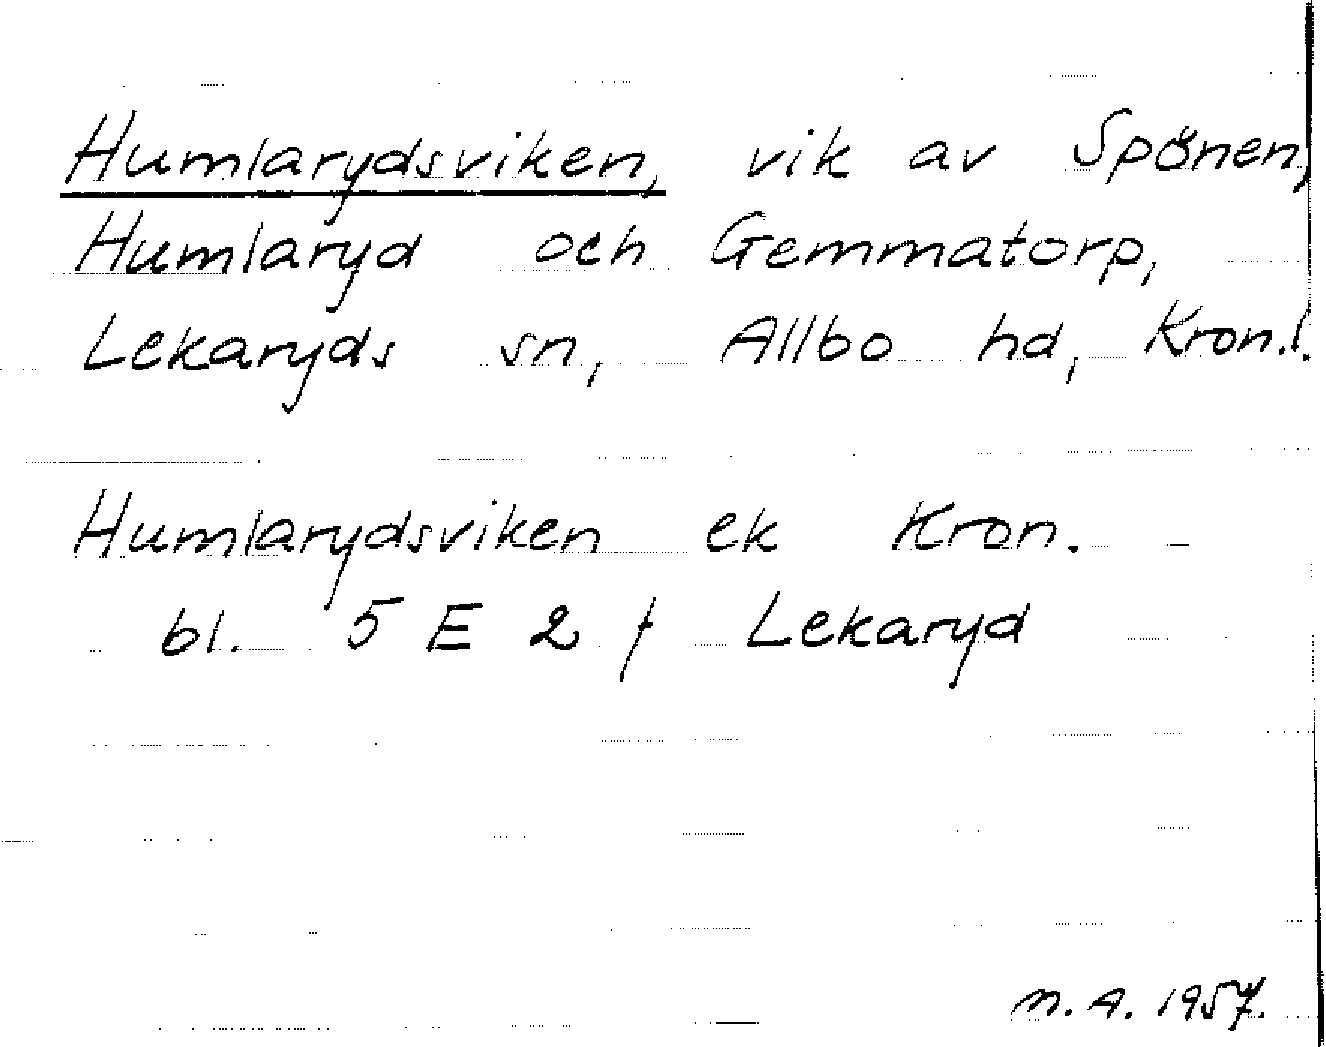 Humlarydsviken, vik av Spånen,
Humlaryd och Gemmatorp,
Lekaryds sn, Allbo hd, Kron.l.
Humlarydsviken ek Kron. -
bl. 5 E 2 f Lekaryd
M.A. 1957.